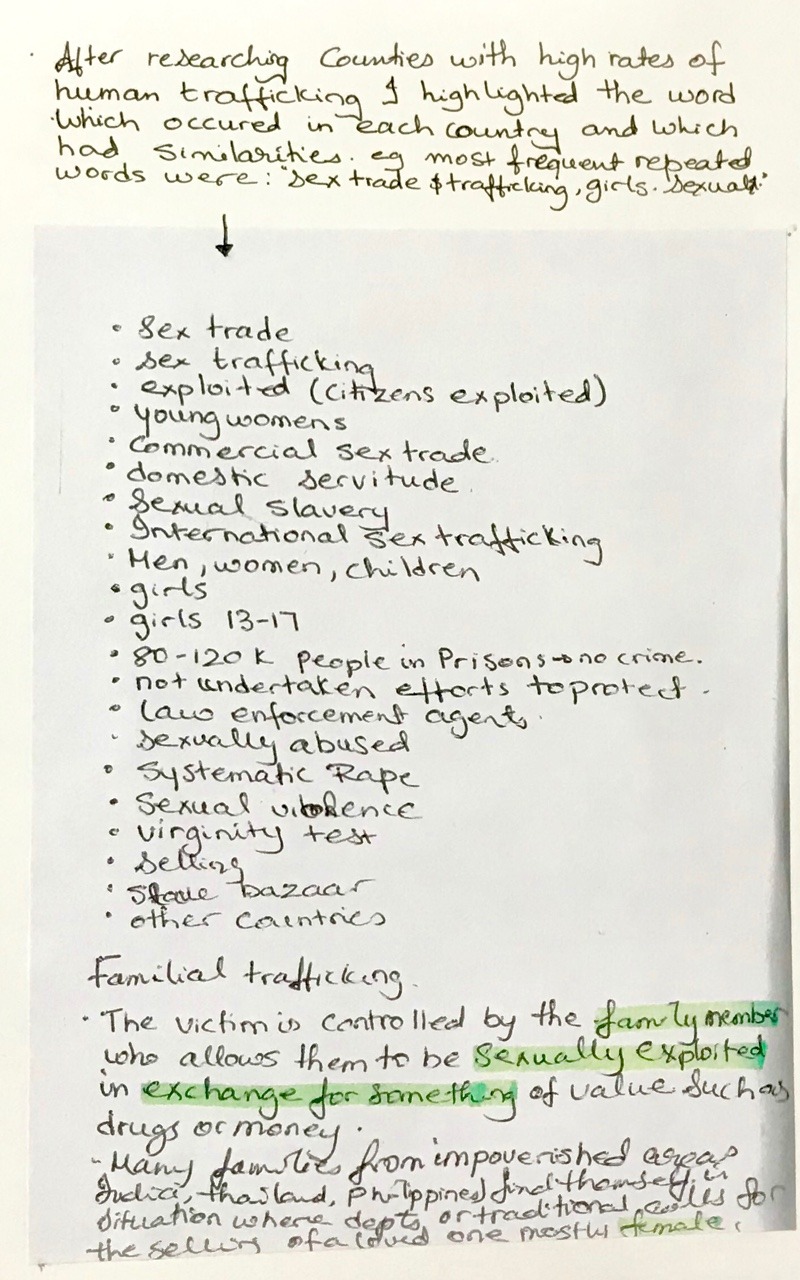 After researching Counties with high rates of
human trafficking I highlighted the word
which occured in each country and which
had similarities. eg most frequent repeated
words were: "sex trade & trafficking, girls. Sexual."
• Sex trade
• sex trafficking
• exploited (citizens exploited)
• young womens
• Commercial sex trade.
• domestic servitude.
• Sexual slavery
• International sex trafficking
• Men, women, children
• girls
• girls 13-17
• 80-120 K people in Prisons → no crime.
• not undertaken efforts to protect.
• law enforcement agents.
• sexually abused
• Systematic Rape
• Sexual violence
• virginity test
• Selling
• Slave bazaar
• other countries
Familial trafficking.
• The victim is controlled by the family member
who allows them to be sexually exploited
in exchange for something of value such as
drugs or money.
- Many families from impoverished areas
India, Thailand, Philippines) find themself in
situation where depts, or traditional for
the selling of a loved one mostly female.